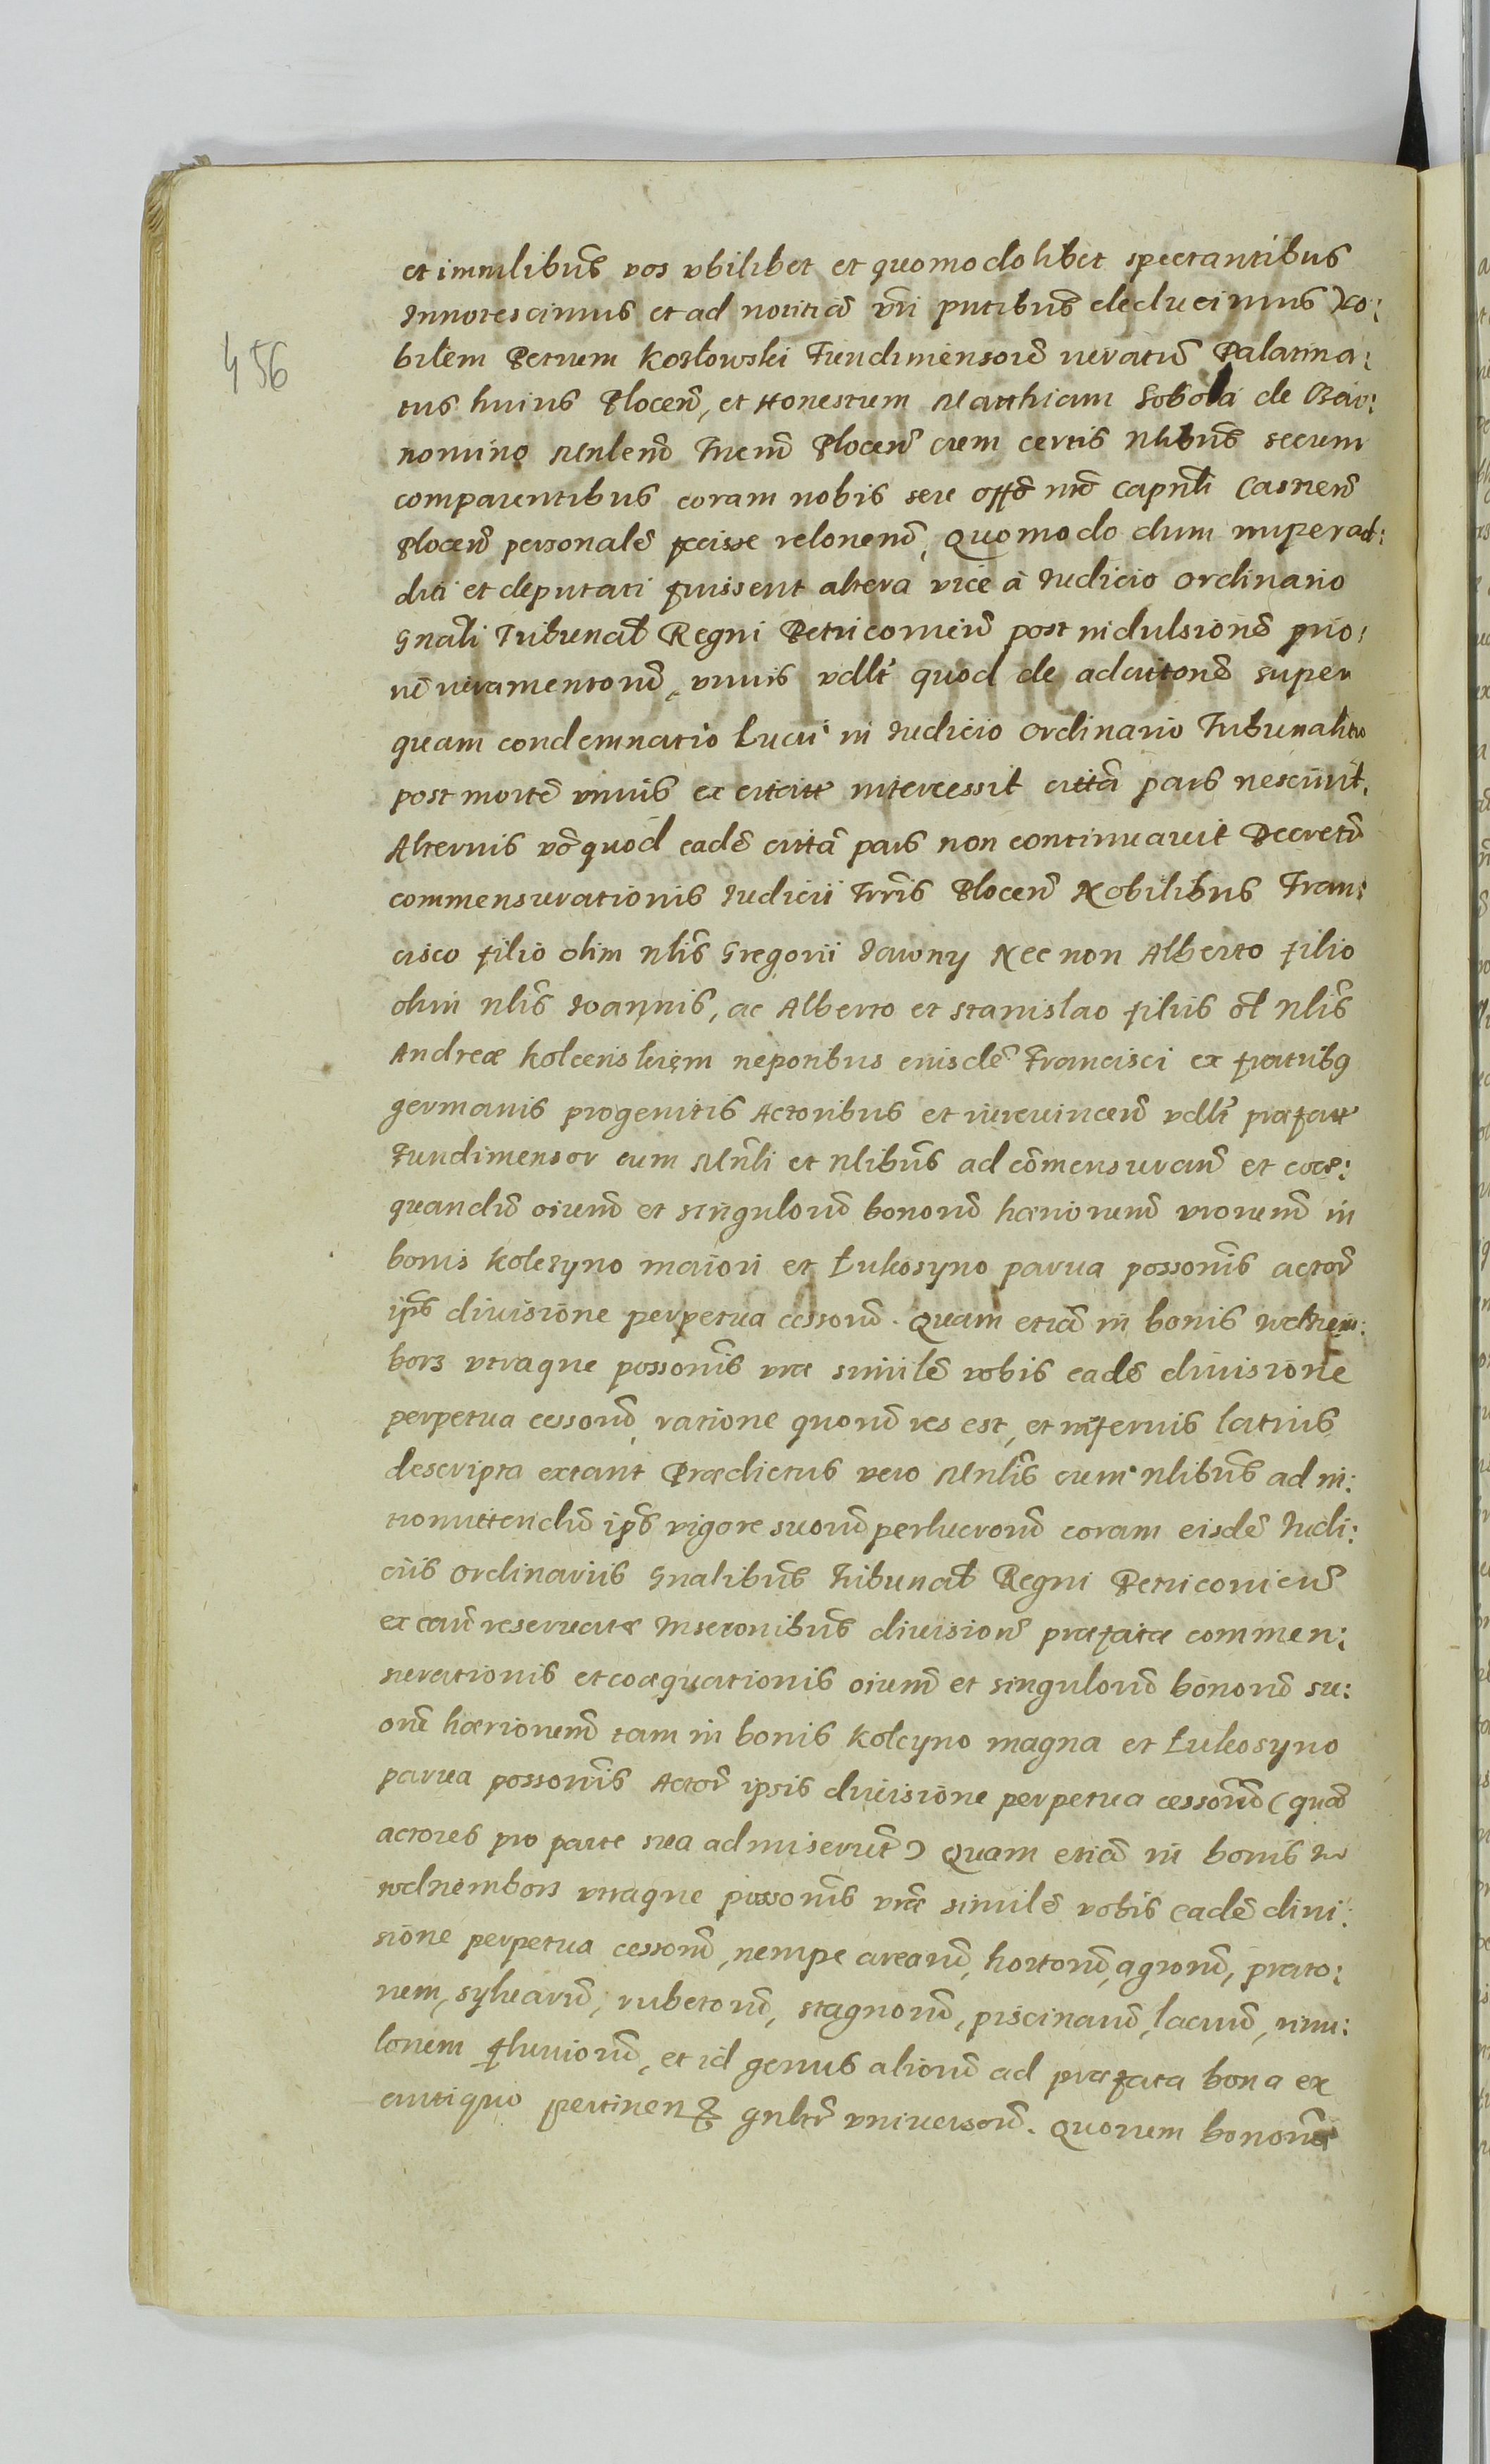 et immlibus vos vbilibet et quomodolibet spectantibus
Innotescimus et ad notitiā vrī pntibus deducimus No:
456
bilem Petrum Kozłowski Fundimensorē iuratū Palatina:
tus huius Plocen̄, et Honestum Matthiam Sobola de
nomine Mnlem̄ Plocen̄ cum certis Nlibus secum
comparentibus coram nobis seu offō nrō capnli Castren̄
Plocen̄ personalē fecisse relonem̄, Quomodo dum nuper ad:
diti et deputati fuissent altera vice à Iudicio ordinario
Gnali Tribunal Regni Petricouien̄ post indulsionē prio:
rū iuramentorū, vnius vdllt quod de adcittonē super
quam condemnatio Lucri in Iudicio ordinario Tribunalitio
post mortē vnius ex citatt intercessit citta pars nesciuit,
Alterius vō quod eadē citta pars non continuauit Decretū
commensurationis Iudicii Trris Plocen̄ Nobilibus Fran:
cisco filio olim nlis Gregorii Nec non Alberto filio
olim nlis Ioannis, ac Alberto et Stanislao filiis ol nlis
Andreæ neporibus eiusdē Francisci ex fratribq
germanis progenitis Actoribus et iureuincen̄ vdllt præfatt
Fundimensor cum Mnli et nlibus ad com̄mensuran̄ et coæ:
quandū oium̄ et singulorū bonorū hærionum̄ in
bonis Kolczyno maiori et Łukosyno parua possonis actor̄
ips divisione perpetua cessorū. Quam etiā in bonis
bors vtraque possonis vræ similē vobis eadē diuisione
perpetua cessorū, ratione quorū res est, et inferius latius
descripta extant Prædictus vero Mnlis cum nlibus ad in:
tromittendū ips vigore suorū perlucrorū coram eisdē Iudi:
ciis Ordinariis Gnalibus Tribunal Regni Petriconien̄
ex reseruatæ Inscronibus diuision̄ præfatæ commen:
surationis et coæquationis oium̄ et singulorū bonorū su:
orū hærionum̄ tam in bonis Kolcyno magna et Łukosyno
parua possonis Actor̄ ipsis diuisione perpetua cessorū (quā
actores pro parte sua admiserūt) Quam etiā in bonis
vtraque possonis vræ similē vobis eadē diui:
sione perpetua cessorū, nempe arearū, hortorū, agrorū, prato:
rum, syluarū, rubetorū, stagnorū, piscinarū, lacuū, riuu:
lorum fluuiorū, et id genus aliorū ad præfata bona ex
antiquo pertinen & gnltr vniuersorū. Quorum bonorū